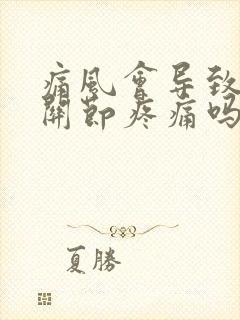 痛風會导致
關節疼痛吗
夏勝